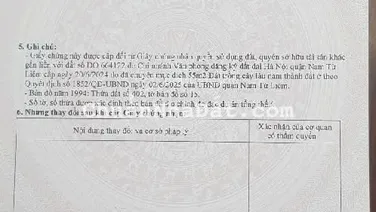 5. Ghi chú:
- Giấy chứng này được cấp đổi từ Giấy chứng nhận quyền sử dụng đất, quyền sở hữu tài sản khác
gắn liền với đất số DO 664172 do Chi nhánh Văn phòng đăng ký đất đai Hà Nội quận Nam Từ
Liêm cấp ngày 20/6/2024 do đã chuyển mục đích 55m2 Đất trồng cây lâu năm thành đất ở theo
Quyết định số 1852/QĐ-UBND ngày 02/6/2025 của UBND quận Nam Từ Liêm.
- Bản đồ năm 1994: Thửa đất số 402, tờ bản đồ số 15.
- Số tờ, số thửa được xác định theo bản đồ
6. Những thay đổi sau khi cấp Giấy chứng nhận:
Nội dung thay đổi và cơ sở pháp lý
Xác nhận của cơ quan
có thẩm quyền